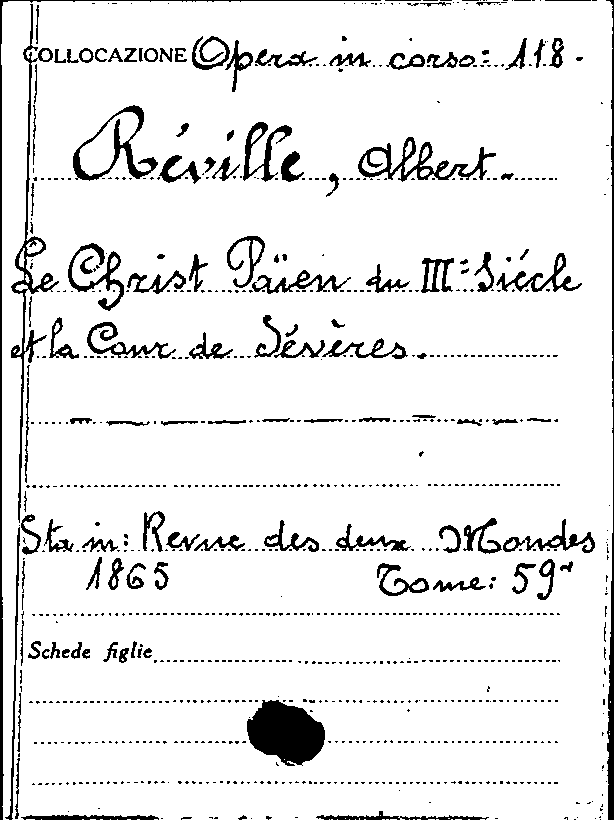 COLLOCAZIONE Opera in corso: 118.
Réville, Albert.
Le Christ Païen du III= Siécle
et la Cour de Sévères.
Sta in: Revue des deux Mondes
1865 Tome: 59"
Schede figlie